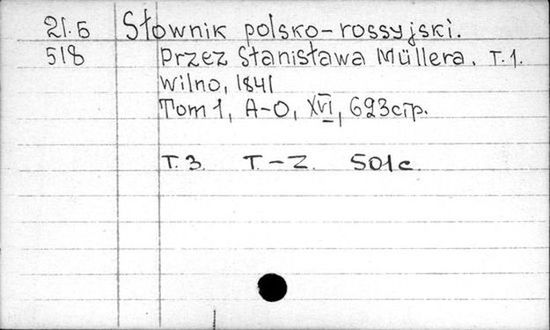 21.5 Słownik polsko-rossyjski.
518 Przez Stanisława Müllera. T.1.
Wilno, 1841
Tom 1, A-O, XVI, 693стр.
T.3. T.-Z. 501c.